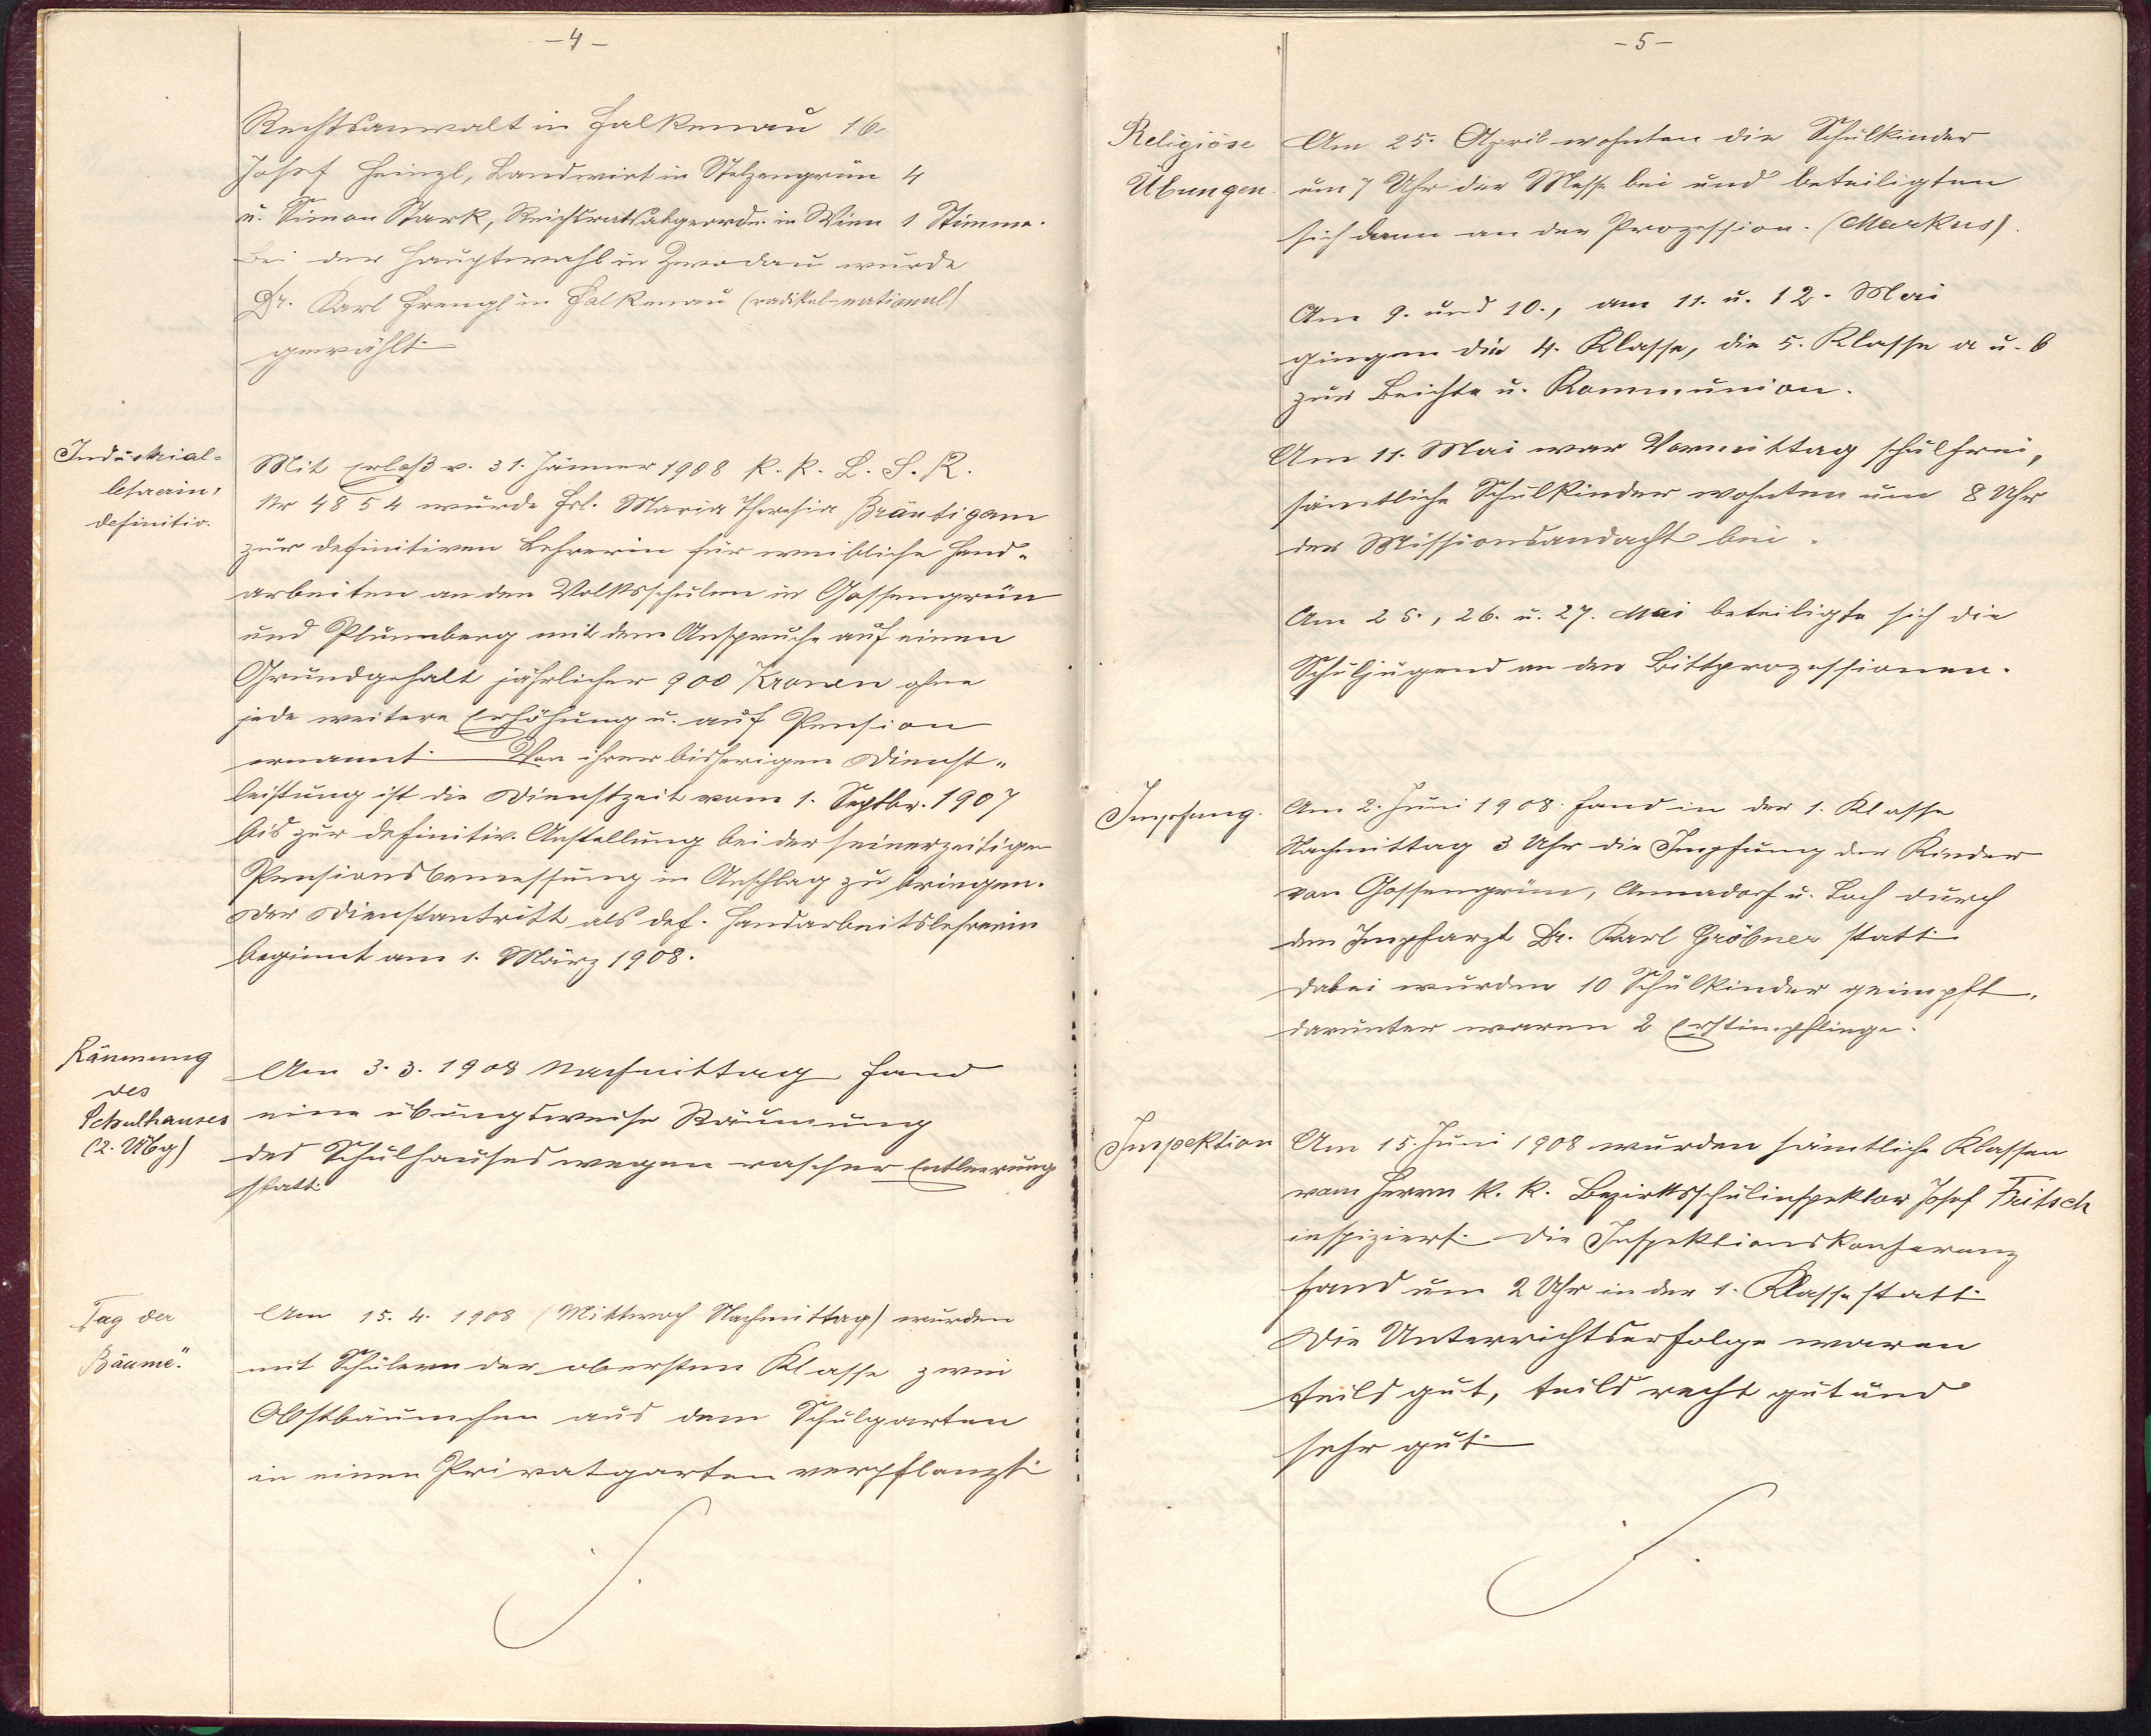 - 4 -
Rechtsanwalt in Falkenau 16
Josef Heinzl, Landwirt in Stelzengrün 4
u. Simon Stark, Reichsratsabgeord. in Wien 1 Stimme.
Bei der Hauptwahl in Zwodau wurde
Dr. Karl Frengl in Falkenau (radikal-national)
gewählt.
Industrial-
lehrerin,
definitiv.
Mit Erlaß v. 31. Jänner 1908 k. k. L. S. R.
Nr 4854 wurde Frl. Maria Theresia Bräutigam
zur definitiven Lehrerin für weibliche Hand-
arbeiten an den Volksschulen in Gossengrün
und Plumberg mit dem Anspruche auf einen
Grundgehalt jährlicher 900 Kronen ohne
jede weitere Erhöhung u. auf Pension
ernannt. Von ihrer bisherigen Dienst-
leistung ist die Dienstzeit vom 1. Septbr. 1907
bis zur definitiv. Anstellung bei der seinerzeitigen
Pensionsbemessung in Anschlag zu bringen.
Der Dienstantritt als def. Handarbeitslehrerin
beginnt am 1. März 1908.
Räumung
des
Schulhauses
(2. Übg)
Am 3. 3. 1908 Nachmittag fand
eine übungsweise Räumung
des Schulhauses wegen rascher Entleerung
statt.
Tag der
Bäume".
Am 15. 4. 1908 (Mittwoch Nachmittag) wurden
mit Schülern der obersten Klasse zwei
Obstbäumchen aus dem Schulgarten
in einen Privatgarten verpflanzt.
- 5 -
Religiöse
Übungen.
Am 25. April wohnten die Schulkinder
um 7 Uhr der Messe bei und beteiligten
sich dann an der Prozession. (Markus).
Am 9. und 10., am 11. u. 12. Mai
gingen die 4. Klasse, die 5. Klasse a u. b
zur Beichte u. Kommunion.
Am 11. Mai war Vormittag schulfrei,
sämtliche Schulkinder wohnten um 8 Uhr
der Missionsandacht bei.
Am 25., 26. u. 27. Mai beteiligte sich die
Schuljugend an den Bittprozessionen.
Impfung.
Am 2. Juni 1908 fand in der 1. Klasse
Nachmittag 3 Uhr die Impfung der Kinder
von Gossengrün, Annadorf u. Loch durch
den Impfarzt Dr. Karl Gröbner statt.
Dabei wurden 10 Schulkinder geimpft,
darunter waren 2 Erstimpflinge.
Inspektion
Am 15. Juni 1908 wurden sämtliche Klassen
vom Herrn k. k. Bezirksschulinspektor Josef Fritsch
inspiziert. Die Inspektionskonferenz
fand um 2 Uhr in der 1. Klasse statt.
Die Unterrichtserfolge waren
teils gut, teils recht gut und
sehr gut.